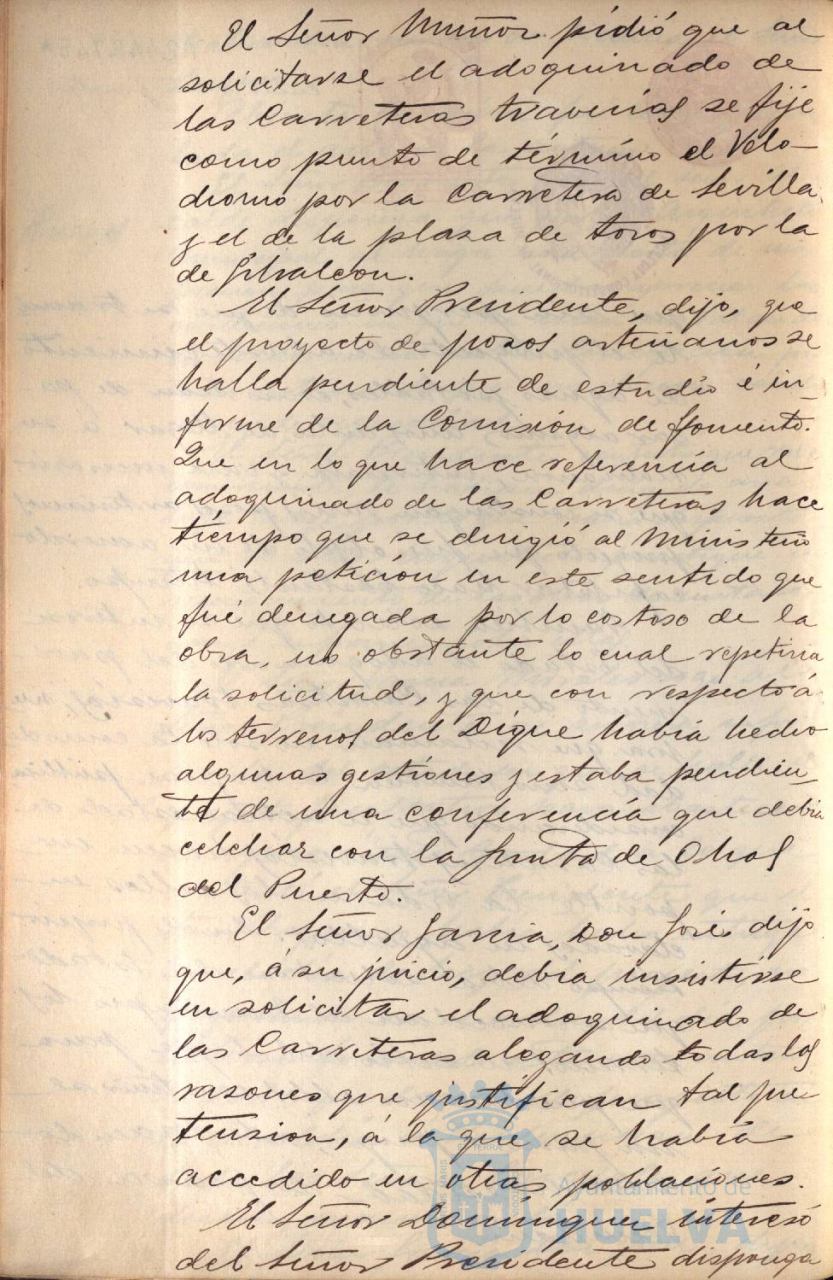 El Señor Muñoz pidió que al
solicitarse el adoquinado de
las Carreteras travesias se fije
como punto de término el Velo-
dromo por la Carretera de Sevilla,
y el de la plaza de toros por la
de Gibraleon.
El Señor Presidente, dijo, que
el proyecto de pozos artesianos se
halla pendiente de estudio é in-
forme de la Comisión de fomento.
Que en lo que hace referencia al
adoquinado de las Carreteras hace
tiempo que se dirigió al Ministerio
una petición en este sentido que
fué denegada por lo costoso de la
obra, no obstante lo cual repetiria
la solicitud, y que con respecto á
los terrenos del Dique habia hecho
algunas gestiones y estaba pendien-
te de una conferencia que debia
celebrar con la Junta de Obras
del Puerto.
El Señor Garcia, Don José, dijo
que, á su juicio, debia insistirse
en solicitar el adoquinado de
las Carreteras alegando todas las
razones que justifican tal pre-
tension, á la que se habia
accedido en otras poblaciones.
El Señor Dominguez interesó
del Señor Presidente disponga
Ayuntamiento de
HUELVA